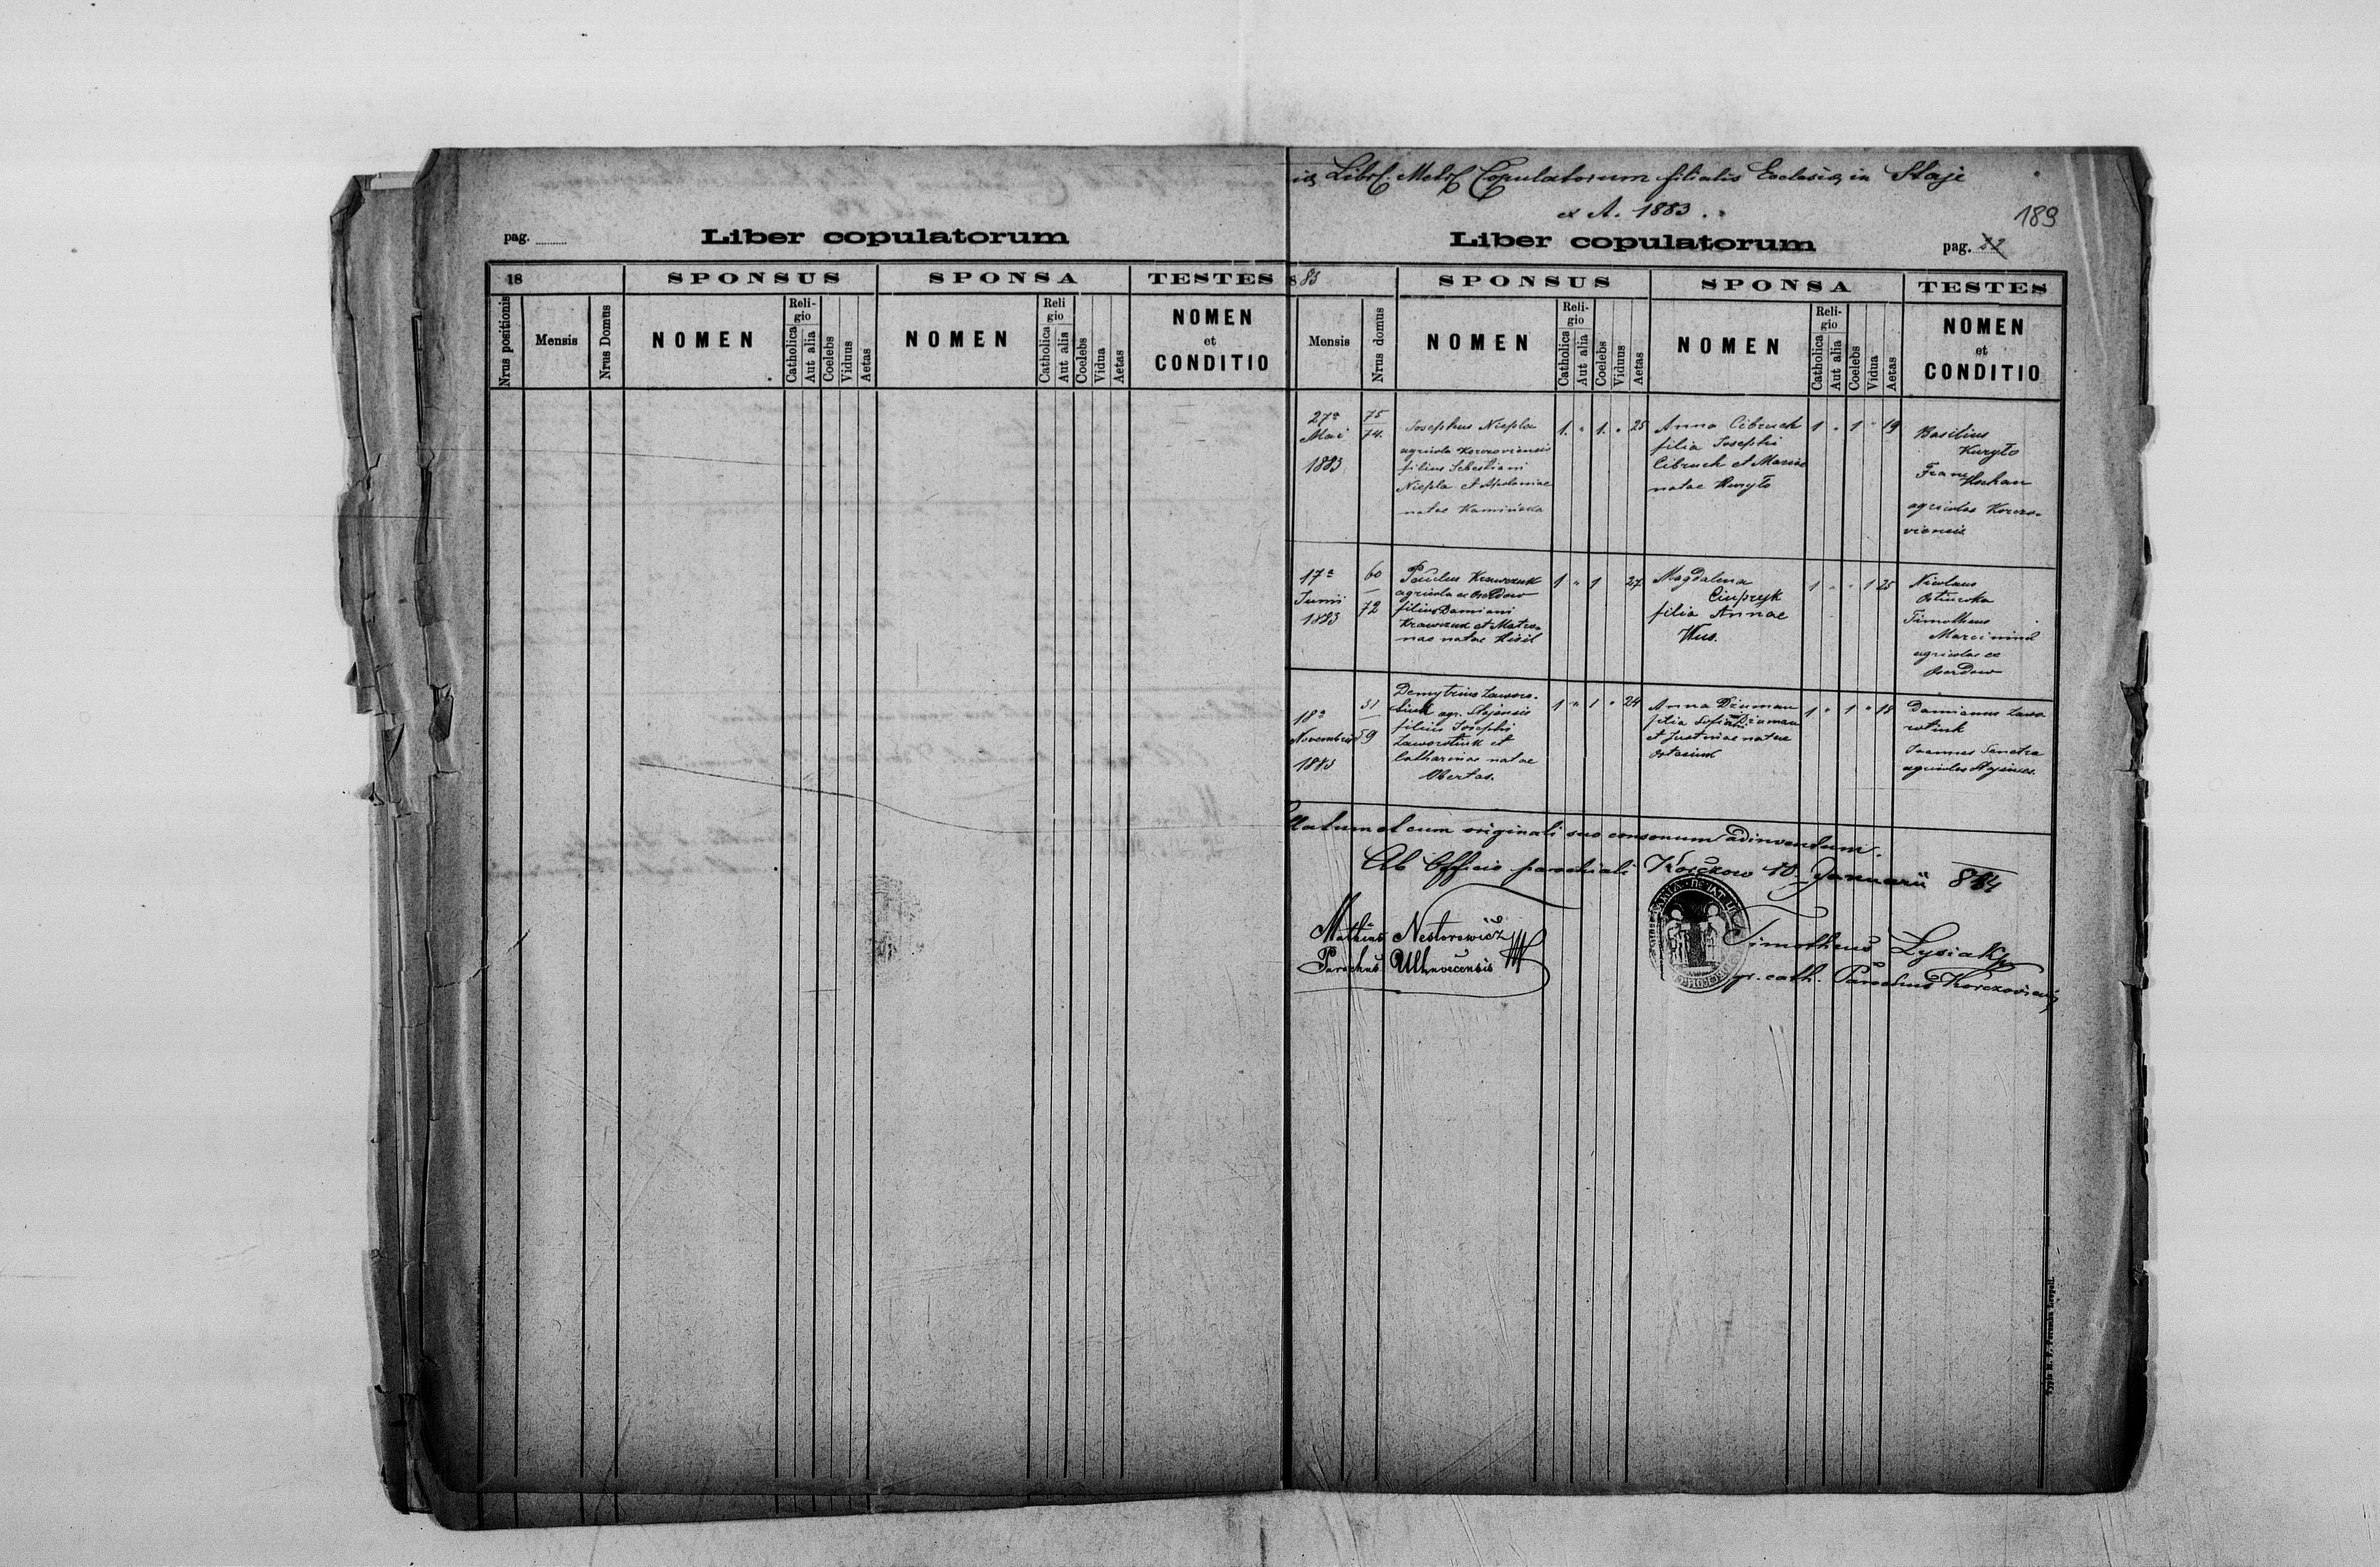 pag.
Liber copulatorum
18
SPONSUS
SPONSA
TESTES
Nrus positionis
Mensis
Nrus Domus
NOMEN
Religio
Catholica
Aut alia
Coelebs
Viduus
Aetas
NOMEN
Religio
Catholica
Aut alia
Coelebs
Vidua
Aetas
NOMEN
et
CONDITIO
Copulatorum filialis Ecclesiae in Staje
ex A. 1883.
189
Liber copulatorum
pag.
83
SPONSUS
SPONSA
TESTES
Mensis
Nrus domus
NOMEN
Religio
Catholica
Aut alia
Coelebs
Viduus
Aetas
NOMEN
Religio
Catholica
Aut alia
Coelebs
Vidua
Aetas
NOMEN
et
CONDITIO
27a
Mai
1883
75
74.
Josephus Niepla
agricola Korczoviensis
filius Sebastiani
Niepla et Apoloniae
natae Kamińska
1. " 1. " 25
Anna Cibruch
filia Josephi
Cibruch et Mariae
natae Kuryło
1 " 1 " 19
Basilius
Kuryło
agricolae Korczo-
viensis
17a
Junii
1883
60
72
Paulus Krawczuk
agricola ex
filius Damiani
Krawczuk et Matro-
nae natae Kisil
1 " 1 27
Magdalena
Ciupryk
filia Annae
Kus.
1 " " 1 25
Nicolaus
Timotheus
agricolae ex
18a
Novembris
1883
51
59
Demytrius Zaworo-
tiuk agr. Stajensis
filius Josephi
Zaworotiuk et
Catharinae natae
Obertas.
1 " 1 " 24
Anna Dziuman
filia Dziuman
et Justinae natae
Ostasiuk
1 " 1 " 18
Damianus Zawo
rotiuk
Joannes
agricolae
et cum originali suo consonum adinventum.
Ab Officio parochiali Korczow 10. Januarii 884
Mathias Nestorowicz
Parochus Uhnovecensis
Timotheus Lysiak
gr. cath. Parochus Korczoviensis
Typis M. F. Poremba Leopoli.